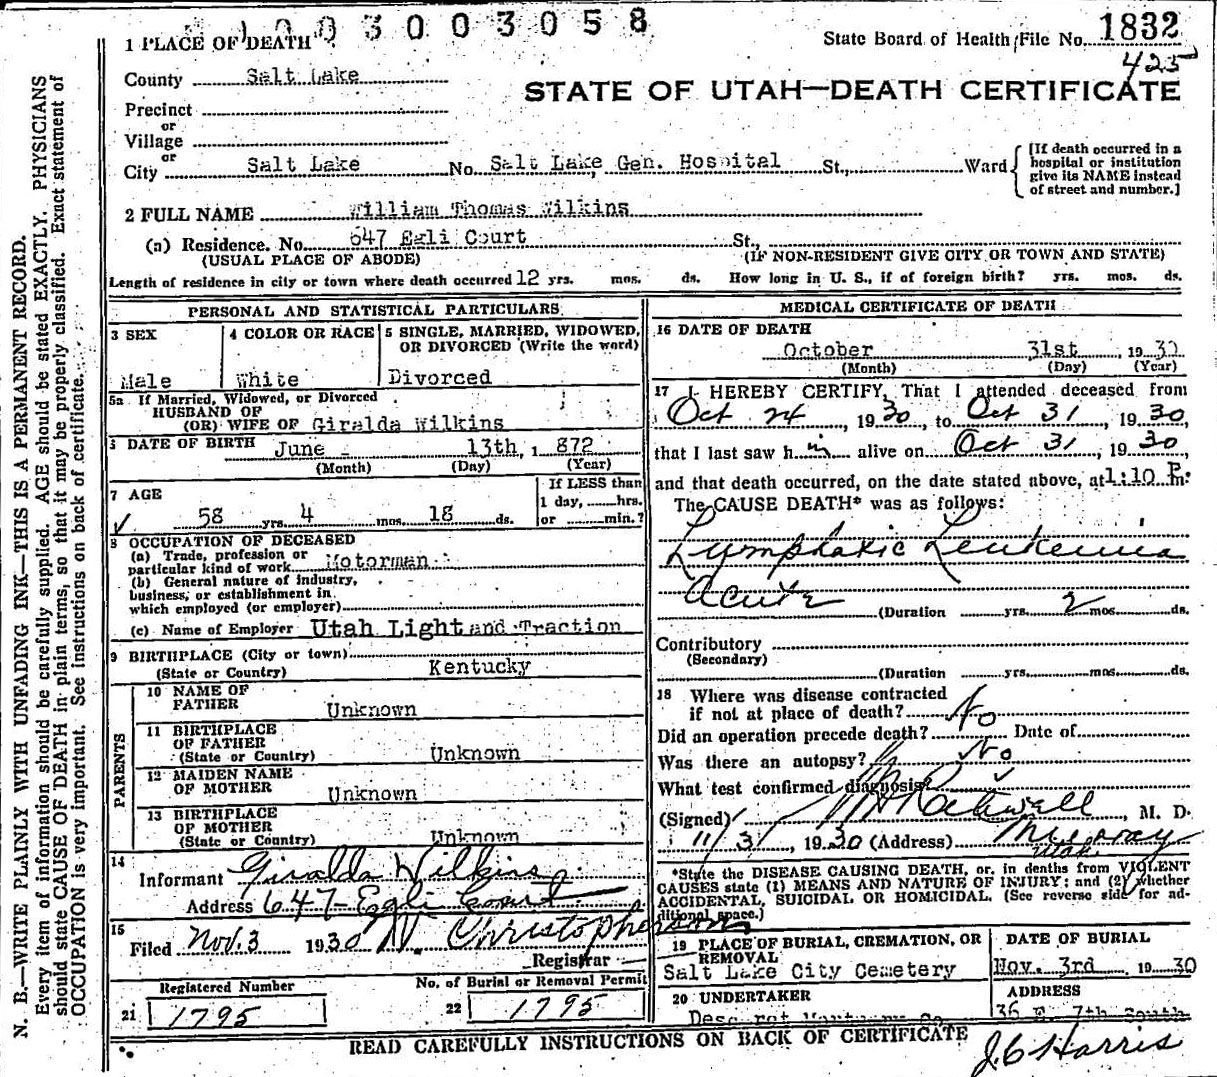 003003058
1 PLACE OF DEATH
State Board of Health File No. 1832
425
County Salt Lake
STATE OF UTAH—DEATH CERTIFICATE
Precinct
or
Village
or
City Salt Lake No. Salt Lake Gen. Hospital St., Ward
[If death occurred in a
hospital or institution
give its NAME instead
of street and number.]
2 FULL NAME William Thomas Wilkins
(a) Residence. No. 647 Egli Court St.,
(USUAL PLACE OF ABODE) (IF NON-RESIDENT GIVE CITY OR TOWN AND STATE)
Length of residence in city or town where death occurred 12 yrs. mos. ds. How long in U. S., if of foreign birth? yrs. mos. ds.
PERSONAL AND STATISTICAL PARTICULARS
3 SEX
Male
4 COLOR OR RACE
White
5 SINGLE, MARRIED, WIDOWED,
OR DIVORCED (Write the word)
Divorced
5a If Married, Widowed, or Divorced
HUSBAND OF
(OR) WIFE OF Giralda Wilkins
DATE OF BIRTH June 13th, 1872
(Month) (Day) (Year)
7 AGE
58 yrs. 4 mos. 18 ds.
If LESS than
1 day, hrs.
or min.?
8 OCCUPATION OF DECEASED
(a) Trade, profession or
particular kind of work Motorman
(b) General nature of industry,
business, or establishment in
which employed (or employer)
(c) Name of Employer Utah Light and Traction
9 BIRTHPLACE (City or town)
(State or Country) Kentucky
PARENTS
10 NAME OF
FATHER Unknown
11 BIRTHPLACE
OF FATHER
(State or Country) Unknown
12 MAIDEN NAME
OF MOTHER Unknown
13 BIRTHPLACE
OF MOTHER
(State or Country) Unknown
14
Informant Giralda Wilkins
Address 647 Egli Court
15
Filed Nov. 3 1930 Christopherson
Registrar
Registered Number
21 1795
No. of Burial or Removal Permit
22 1795
MEDICAL CERTIFICATE OF DEATH
16 DATE OF DEATH
October 31st, 1930
(Month) (Day) (Year)
17 I HEREBY CERTIFY, That I attended deceased from
Oct 24, 1930, to Oct 31, 1930,
that I last saw him alive on Oct 31, 1930,
and that death occurred, on the date stated above, at 1:10 P. m.
The CAUSE DEATH* was as follows:
Lymphatic Leukemia
acute (Duration yrs. 2 mos. ds.
Contributory
(Secondary)
(Duration yrs. mos. ds.
18 Where was disease contracted
if not at place of death?
Did an operation precede death? No Date of
Was there an autopsy? No
What test confirmed diagnosis?
(Signed) Rockwell, M. D.
11/31, 1930 (Address) Murray
Utah
*State the DISEASE CAUSING DEATH, or, in deaths from VIOLENT
CAUSES state (1) MEANS AND NATURE OF INJURY; and (2) whether
ACCIDENTAL, SUICIDAL OR HOMICIDAL. (See reverse side for ad-
ditional space.)
19 PLACE OF BURIAL, CREMATION, OR
REMOVAL
Salt Lake City Cemetery
DATE OF BURIAL
Nov. 3rd 1930
20 UNDERTAKER
Deseret Mortuary Co
ADDRESS
36 E. 7th South
READ CAREFULLY INSTRUCTIONS ON BACK OF CERTIFICATE
J C Harris
N. B.—WRITE PLAINLY WITH UNFADING INK—THIS IS A PERMANENT RECORD.
Every item of information should be carefully supplied. AGE should be stated EXACTLY. PHYSICIANS
should state CAUSE OF DEATH in plain terms, so that it may be properly classified. Exact statement of
OCCUPATION is very important. See instructions on back of certificate.